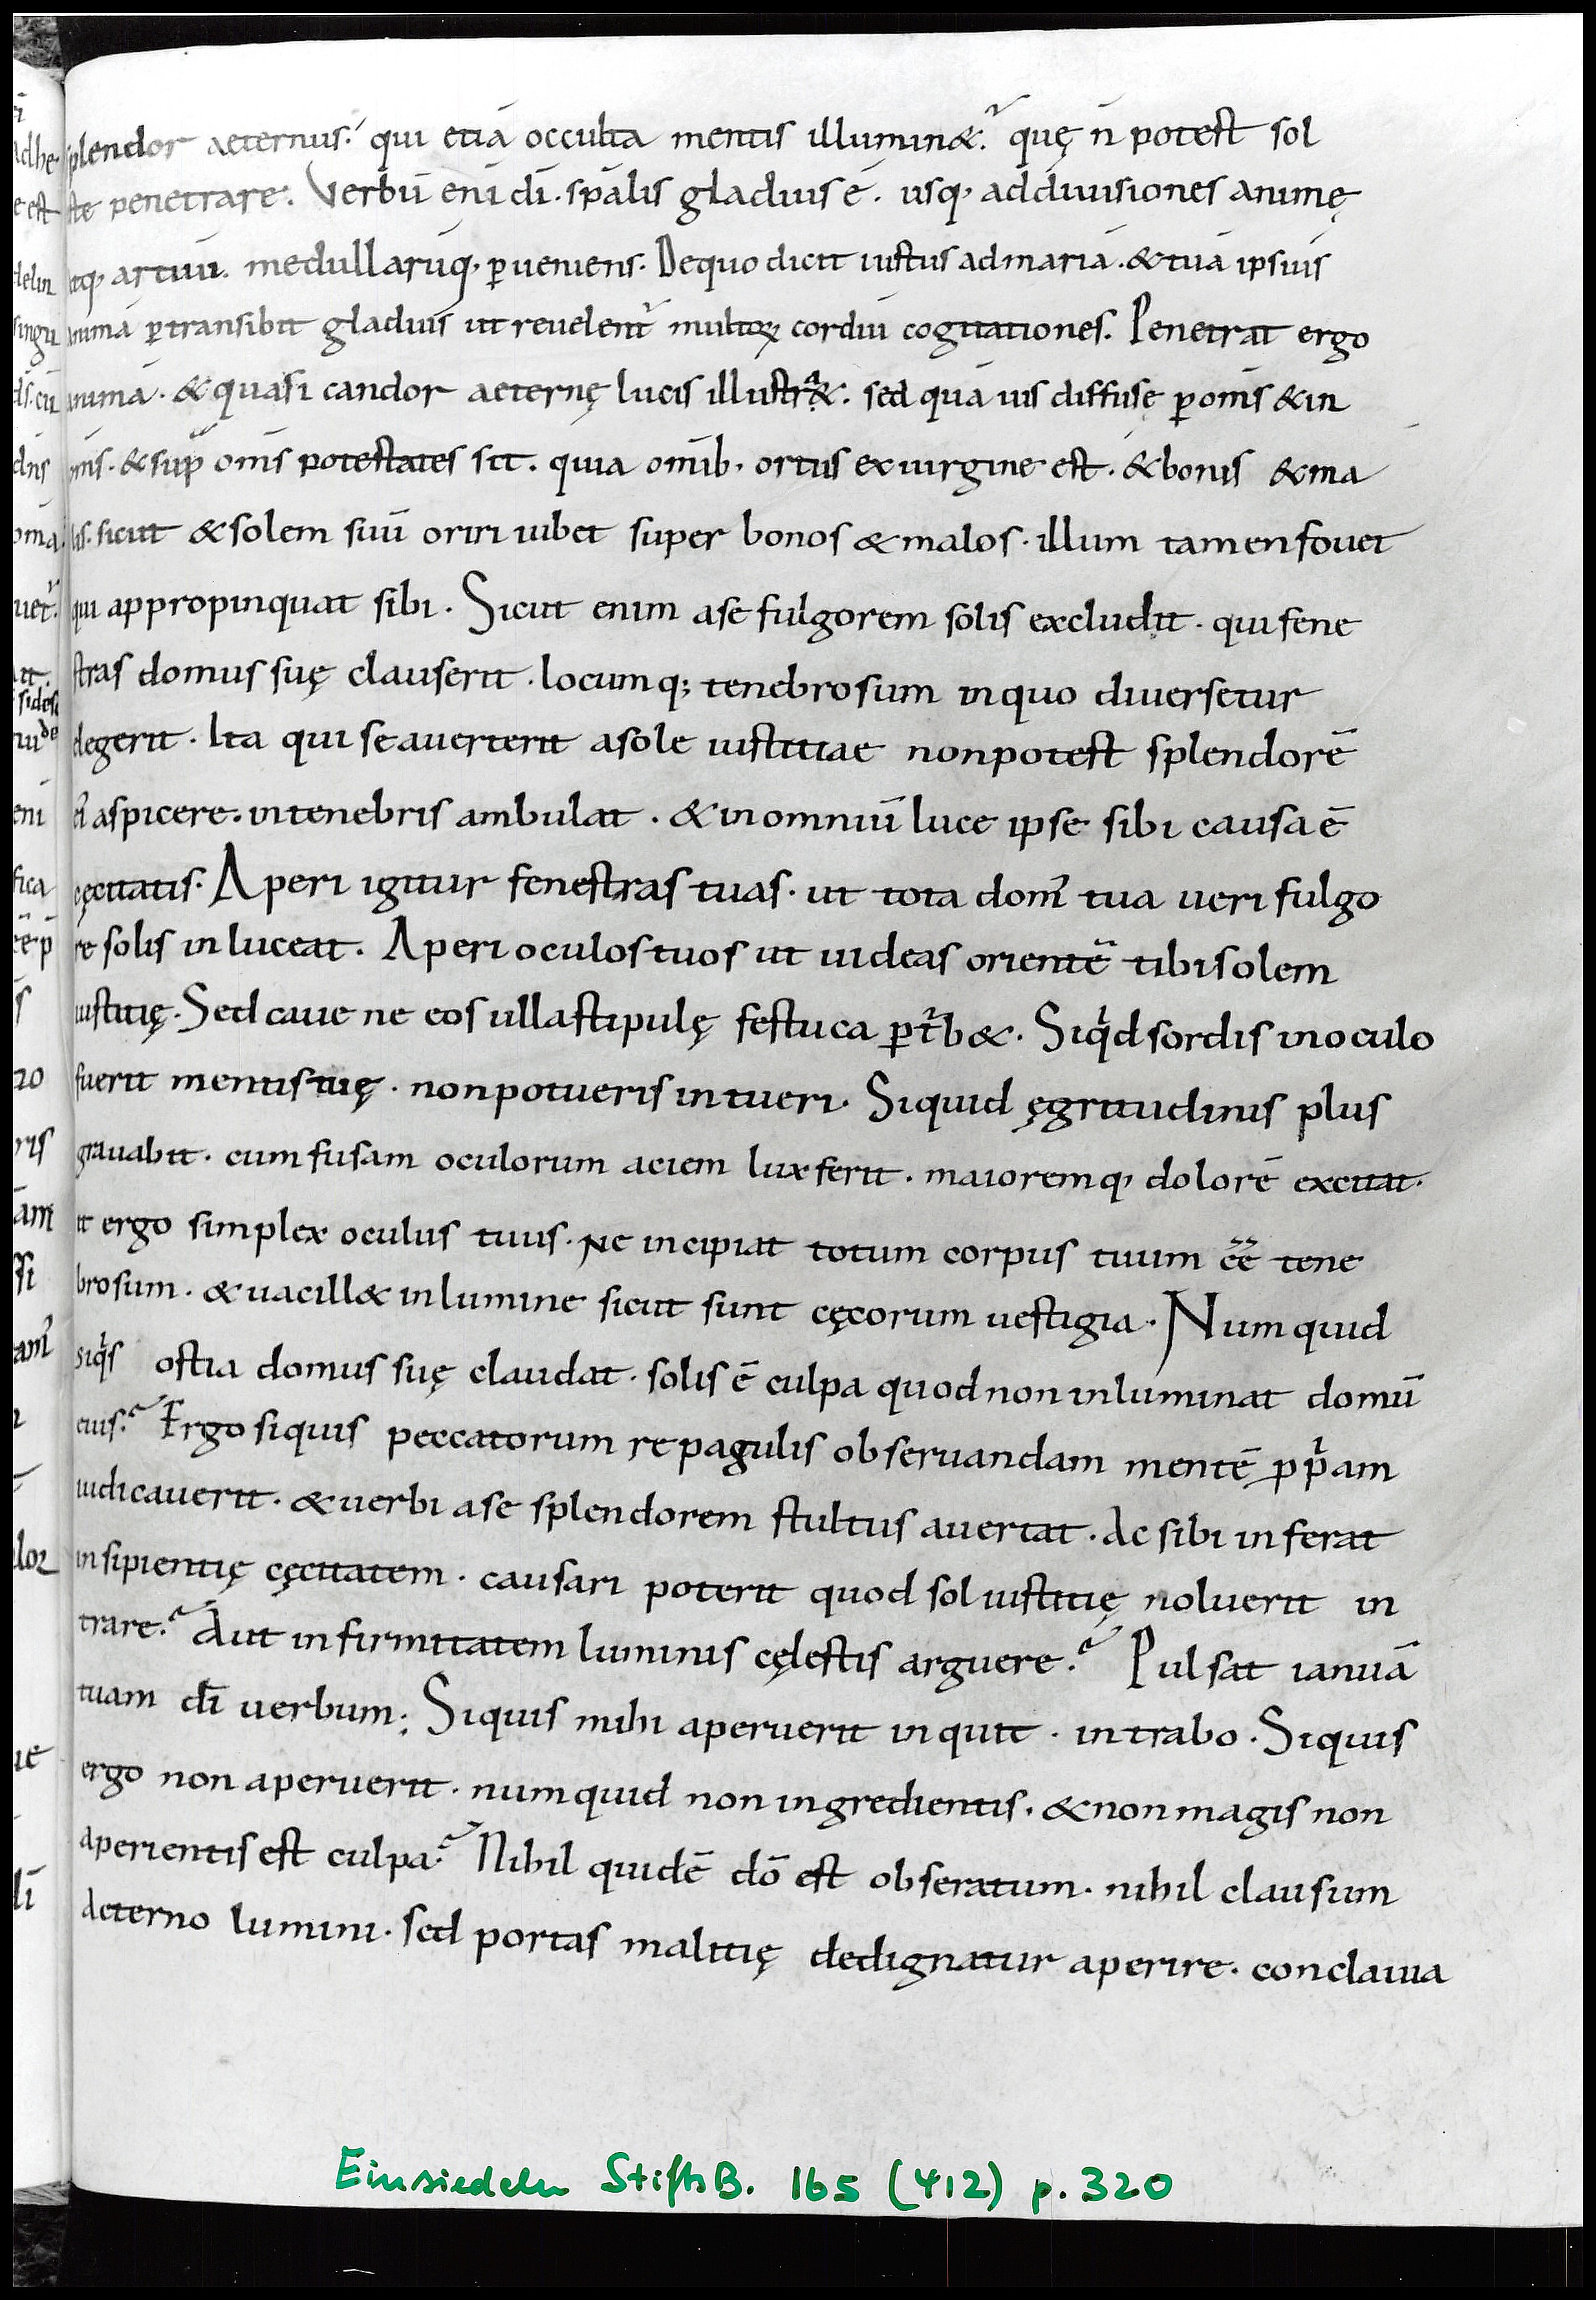 splendor aeternus. qui etiā occulta mentis illumin&. quę n̄ potest sol
iste penetrare. Verbū eni dī. spālis gladius ē. usq, addiuisiones animę
atq, artuū. medullarūq, ꝑueniens. Dequo dicit iustus admariā. &tuā ipsius
animā ꝑtransibit gladius ut reuelent᷑ multoꝝ cordiū cogitationes. Penetrat ergo
animā. &quasi candor aeternę lucis illustr&. sed quā uis diffusę ꝑ om̄s &in
om̄s. &suꝑ om̄s potestates sit. quia omīb. ortus exuirgine est. &bonis &ma
lis. sicut &solem suū oriri iubet super bonos &malos. illum tamen fouet
qui appropinquat sibi. Sicut enim ase fulgorem solis excludit. qui fene
stras domus suę clauserit. locumq; tenebrosum inquo diuersetur
elegerit. Ita qui se auerterit asole iustitiae nonpotest splendorē
ei᷒ aspicere. intenebris ambulat. &inomniū luce ipse sibi causa ē
cęcitatis. Aperi igitur fenestras tuas. ut tota dom᷒ tua ueri fulgo
re solis inluceat. Aperi oculos tuos ut uideas orientē tibi solem
iustitię. Sed caue ne eos ulla stipulę festuca ꝑt᷑b&. Siqͥd sordis inoculo
fuerit mentis tuę. nonpotueris intueri. Siquid ęgritudinis plus
grauabit. cum fusam oculorum aciem lux ferit. maioremq, dolorē excitat.
it ergo simplex oculus tuus. Ne incipiat totum corpus tuum ēē tene
brosum. &uacill& inlumine sicut sunt cęcorum uestigia. Numquid
siqͥs ostia domus suę claudat. solis ē culpa quod non inluminat domū
eius. Ergo siquis peccatorum repagulis obseruandam mentē ꝓpͥam
iudicauerit. &uerbi ase splendorem stultus auertat. Ac sibi inferat
insipientię cęcitatem. causari poterit quod sol iustitię noluerit in
trare. Aut infirmitatem luminis cęlestis arguere. Pulsat ianuā
tuam dī uerbum; Siquis mihi aperuerit inquit. intrabo. Siquis
ergo non aperuerit. numquid non ingredientis. &non magis non
aperientis est culpa. Nihil quidē dō est obseratum. nihil clausum
Aeterno lumini. sed portas malitię dedignatur aperire. conclauia
Einsiedeln StiftsB. 165 (412) p. 320